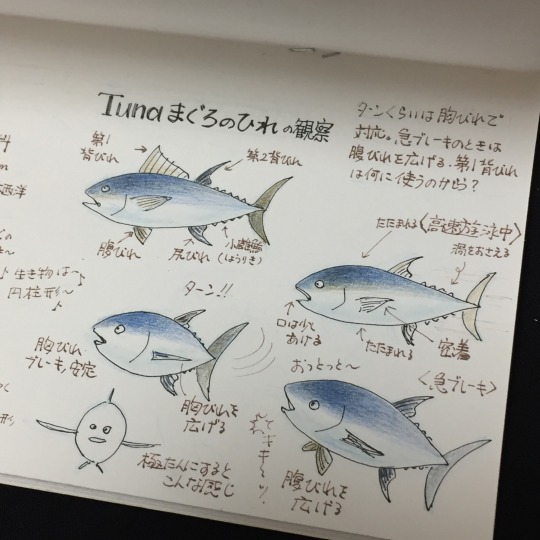 Tuna まぐろのひれの観察
ターンくらいは胸びれで
対応。急ブレーキのときは
腹びれを広げる。第1背びれ
は何に使うのかな？
第1
背びれ
第2背びれ
腹びれ
尻びれ
小離鰭
(しょうりき)
西洋
♪生き物は〜♪
円柱形〜
♪
たたまれる
〈高速遊泳中〉
渦をおさえる
口は少し
あける
たたまれる
密着
ターン!!
胸びれ
ブレーキ,安定
胸びれを
広げる
極たんにすると
こんな感じ
おっとっと〜
〈急ブレーキ〉
腹びれを
広げる